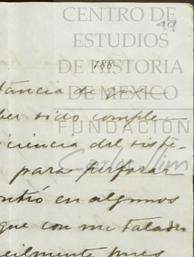 CENTRO DE
ESTUDIOS
DE HISTORIA
188
DE MÉXICO
FUNDACIÓN
Carlos Slim
tancia de
ber sido comple
ciencia del
para perforar
entró en algunos
que con mi taladro
cilmente pues